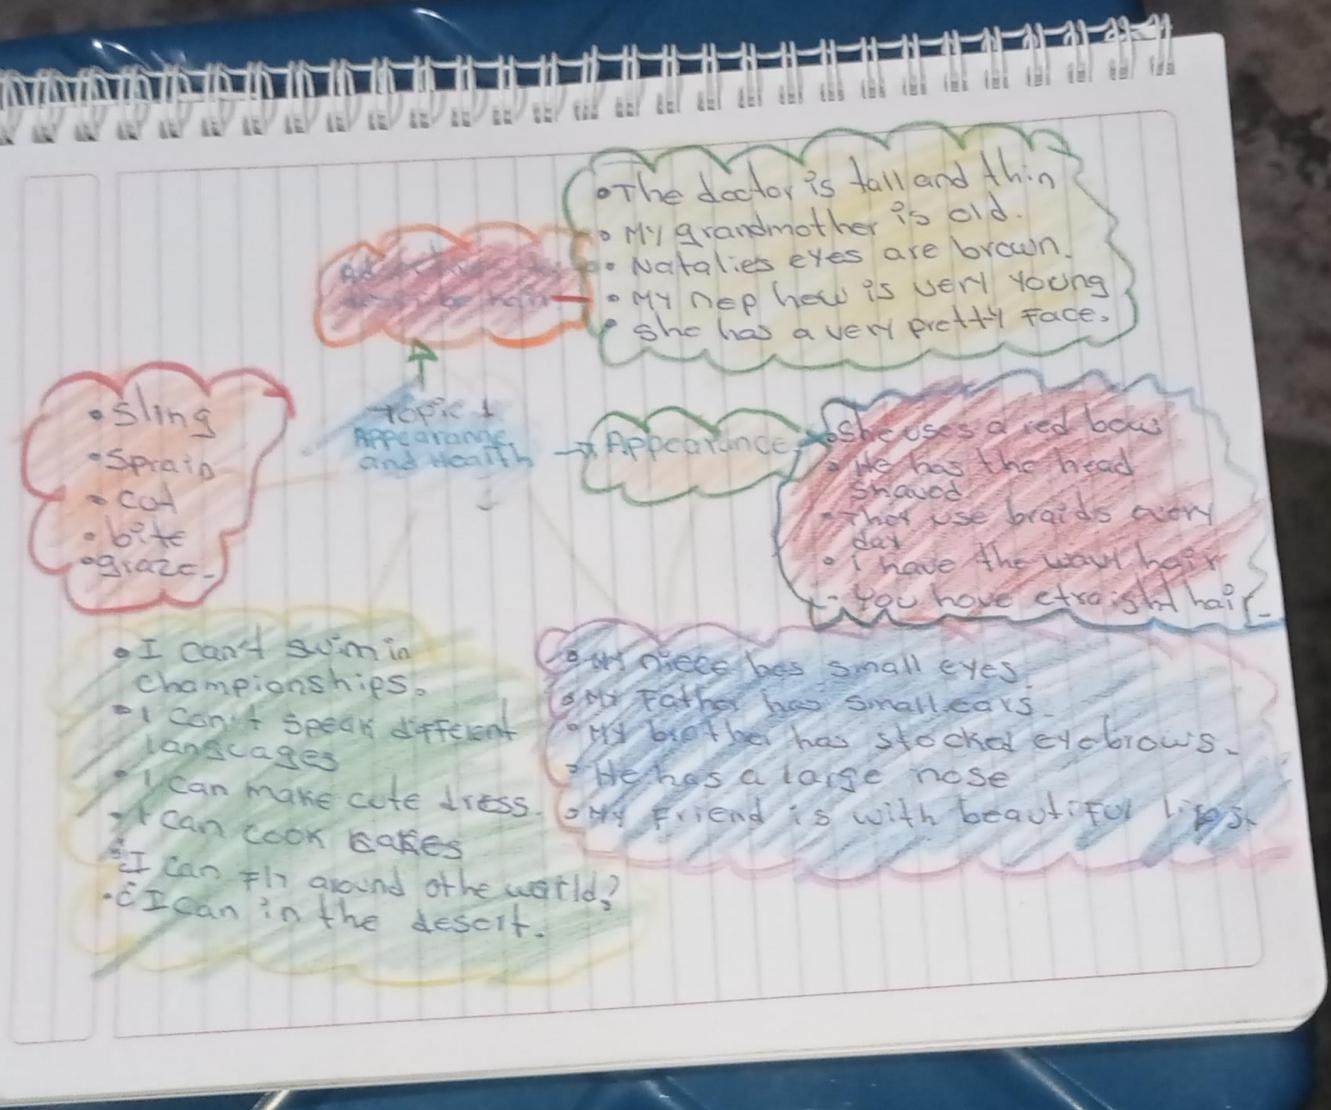 • The doctor is tall and thin
• My grandmother is old.
• Natalies eyes are brown.
• My nephew is very young
• She has a very pretty Face.
topic 1
Appearance
and Health
Appearance
• Sling
• Sprain
• cut
• bite
• graze.
• She uses a red bow
• He has the head
shaved
• They use braids every
day
• I have the wavy hair
- You have straight hair.
• I can't swim in
championships.
• I can't speak different
languages
• I can make cute dress.
• I can cook cakes
¿I can Fly around othe world?
• ¿I can in the desert.
• My niece has small eyes.
• My Father has small ears.
• My brother has stocked eyebrows.
• He has a large nose
• My Friend is with beautiful lips.